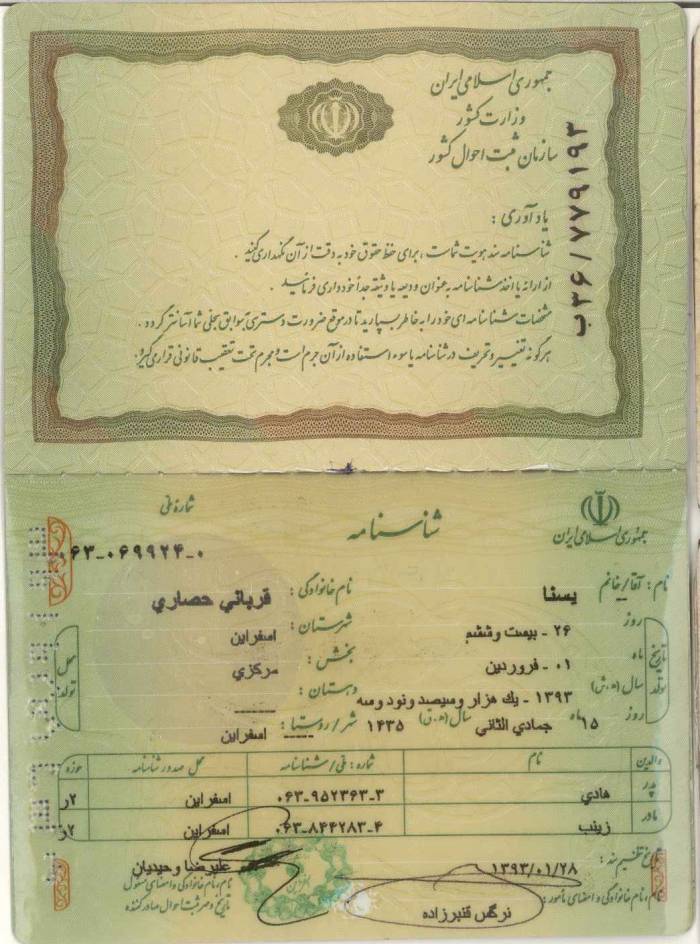 جمهوری اسلامی ایران
وزارت کشور
سازمان ثبت احوال کشور
ب۳۶/۷۷۹۱۹۳
یادآوری :
شناسنامه سند هویت شماست ، برای حفظ حقوق خود به دقت از آن نگهداری کنید .
از ارائه یا اخذ شناسنامه به عنوان ودیعه یا وثیقه جداً خودداری فرمائید .
مشخصات شناسنامه ای خود را به خاطر بسپارید تا در موقع ضرورت دسترسی به سوابق سجلی شما آسانتر گردد .
هرگونه تغییر و تحریف در شناسنامه یا سوء استفاده از آن جرم است و مجرم تحت تعقیب قانونی قرار می گیرد.
جمهوری اسلامی ایران
شناسنامه
شماره ملی
۰۶۳-۰۶۹۹۲۴-۰
نام : آقا/خانم یسنا نام خانوادگی : قرباني حصاري
تاریخ تولد
روز ۲۶ - بیست وششم
ماه ۰۱ - فروردین
سال (ه.ش) ۱۳۹۳ - یك هزار وسیصد ونود وسه
روز ۱۵ ماه جمادي الثاني سال (ه.ق) ۱۴۳۵
محل تولد
شهرستان : اسفراین
بخش : مرکزي
دهستان : -----
شهر/روستا : اسفراین
والدین نام شماره : ملی/شناسنامه محل صدور شناسنامه حوزه
پدر هادي ۰۶۳-۹۵۲۳۶۳-۳ اسفراین ۲ر
مادر زینب ۰۶۳-۸۴۴۲۸۳-۴ اسفراین ۲ر
تاریخ تنظیم سند : ۱۳۹۳/۰۱/۲۸
علیرضا وحیدیان
نام ، نام خانوادگی و امضای مأمور : نرگس قنبرزاده
نام ، نام خانوادگی و امضای مسئول
تاریخ و مهر ثبت احوال صادرکننده